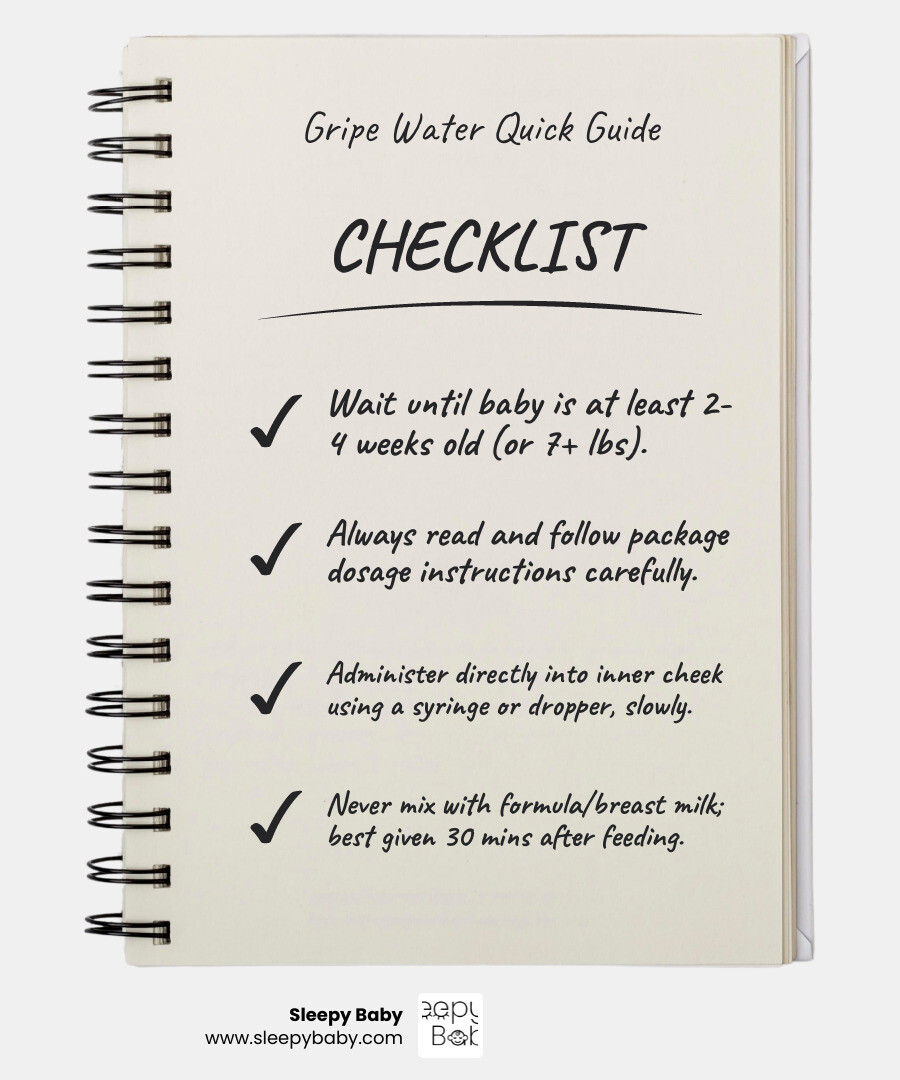 Gripe Water Quick Guide
CHECKLIST
Wait until baby is at least 2-
4 weeks old (or 7+ lbs).
Always read and follow package
dosage instructions carefully.
Administer directly into inner cheek
using a syringe or dropper, slowly.
Never mix with formula/breast milk;
best given 30 mins after feeding.
Sleepy Baby
www.sleepybaby.com